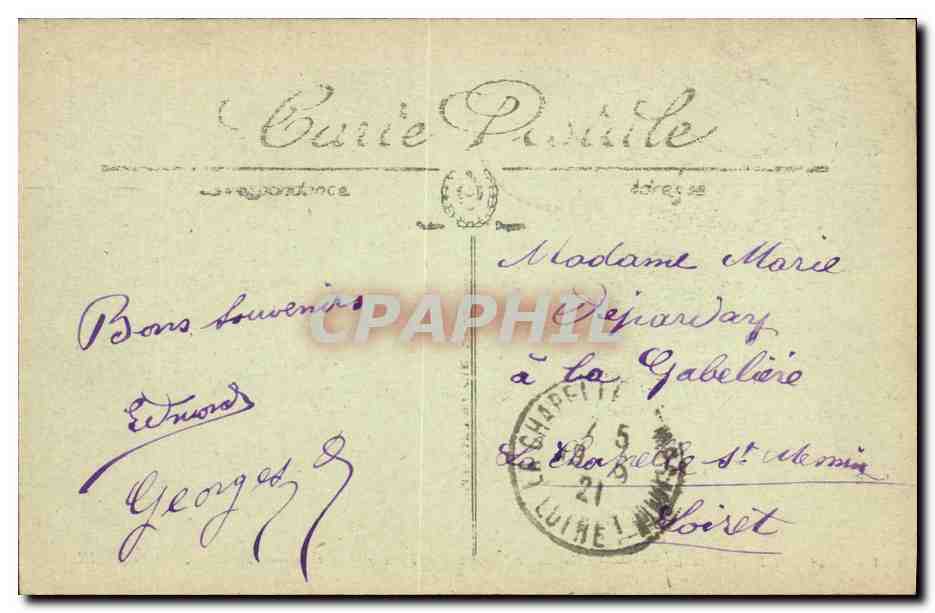 Carte Postale
Correspondance
Adresse
Bons souvenirs
Edmond
Georges
CPAPHIL
Madame Marie
à la Gabelière
La Chapelle St Mesmin
Loiret
LA CHAPELLE
5
21
LOIRET